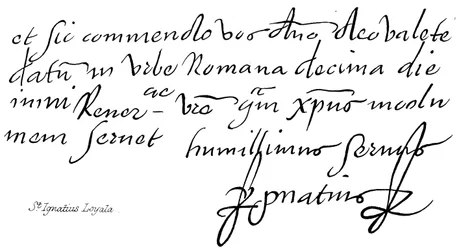 et sic commendo vos dño deo valete
datū in Vrbe Romana decima die
iunii Rever ac vrē xpūs incolu
mem servet humillimus servus
Ignatius
St. Ignatius Loyala